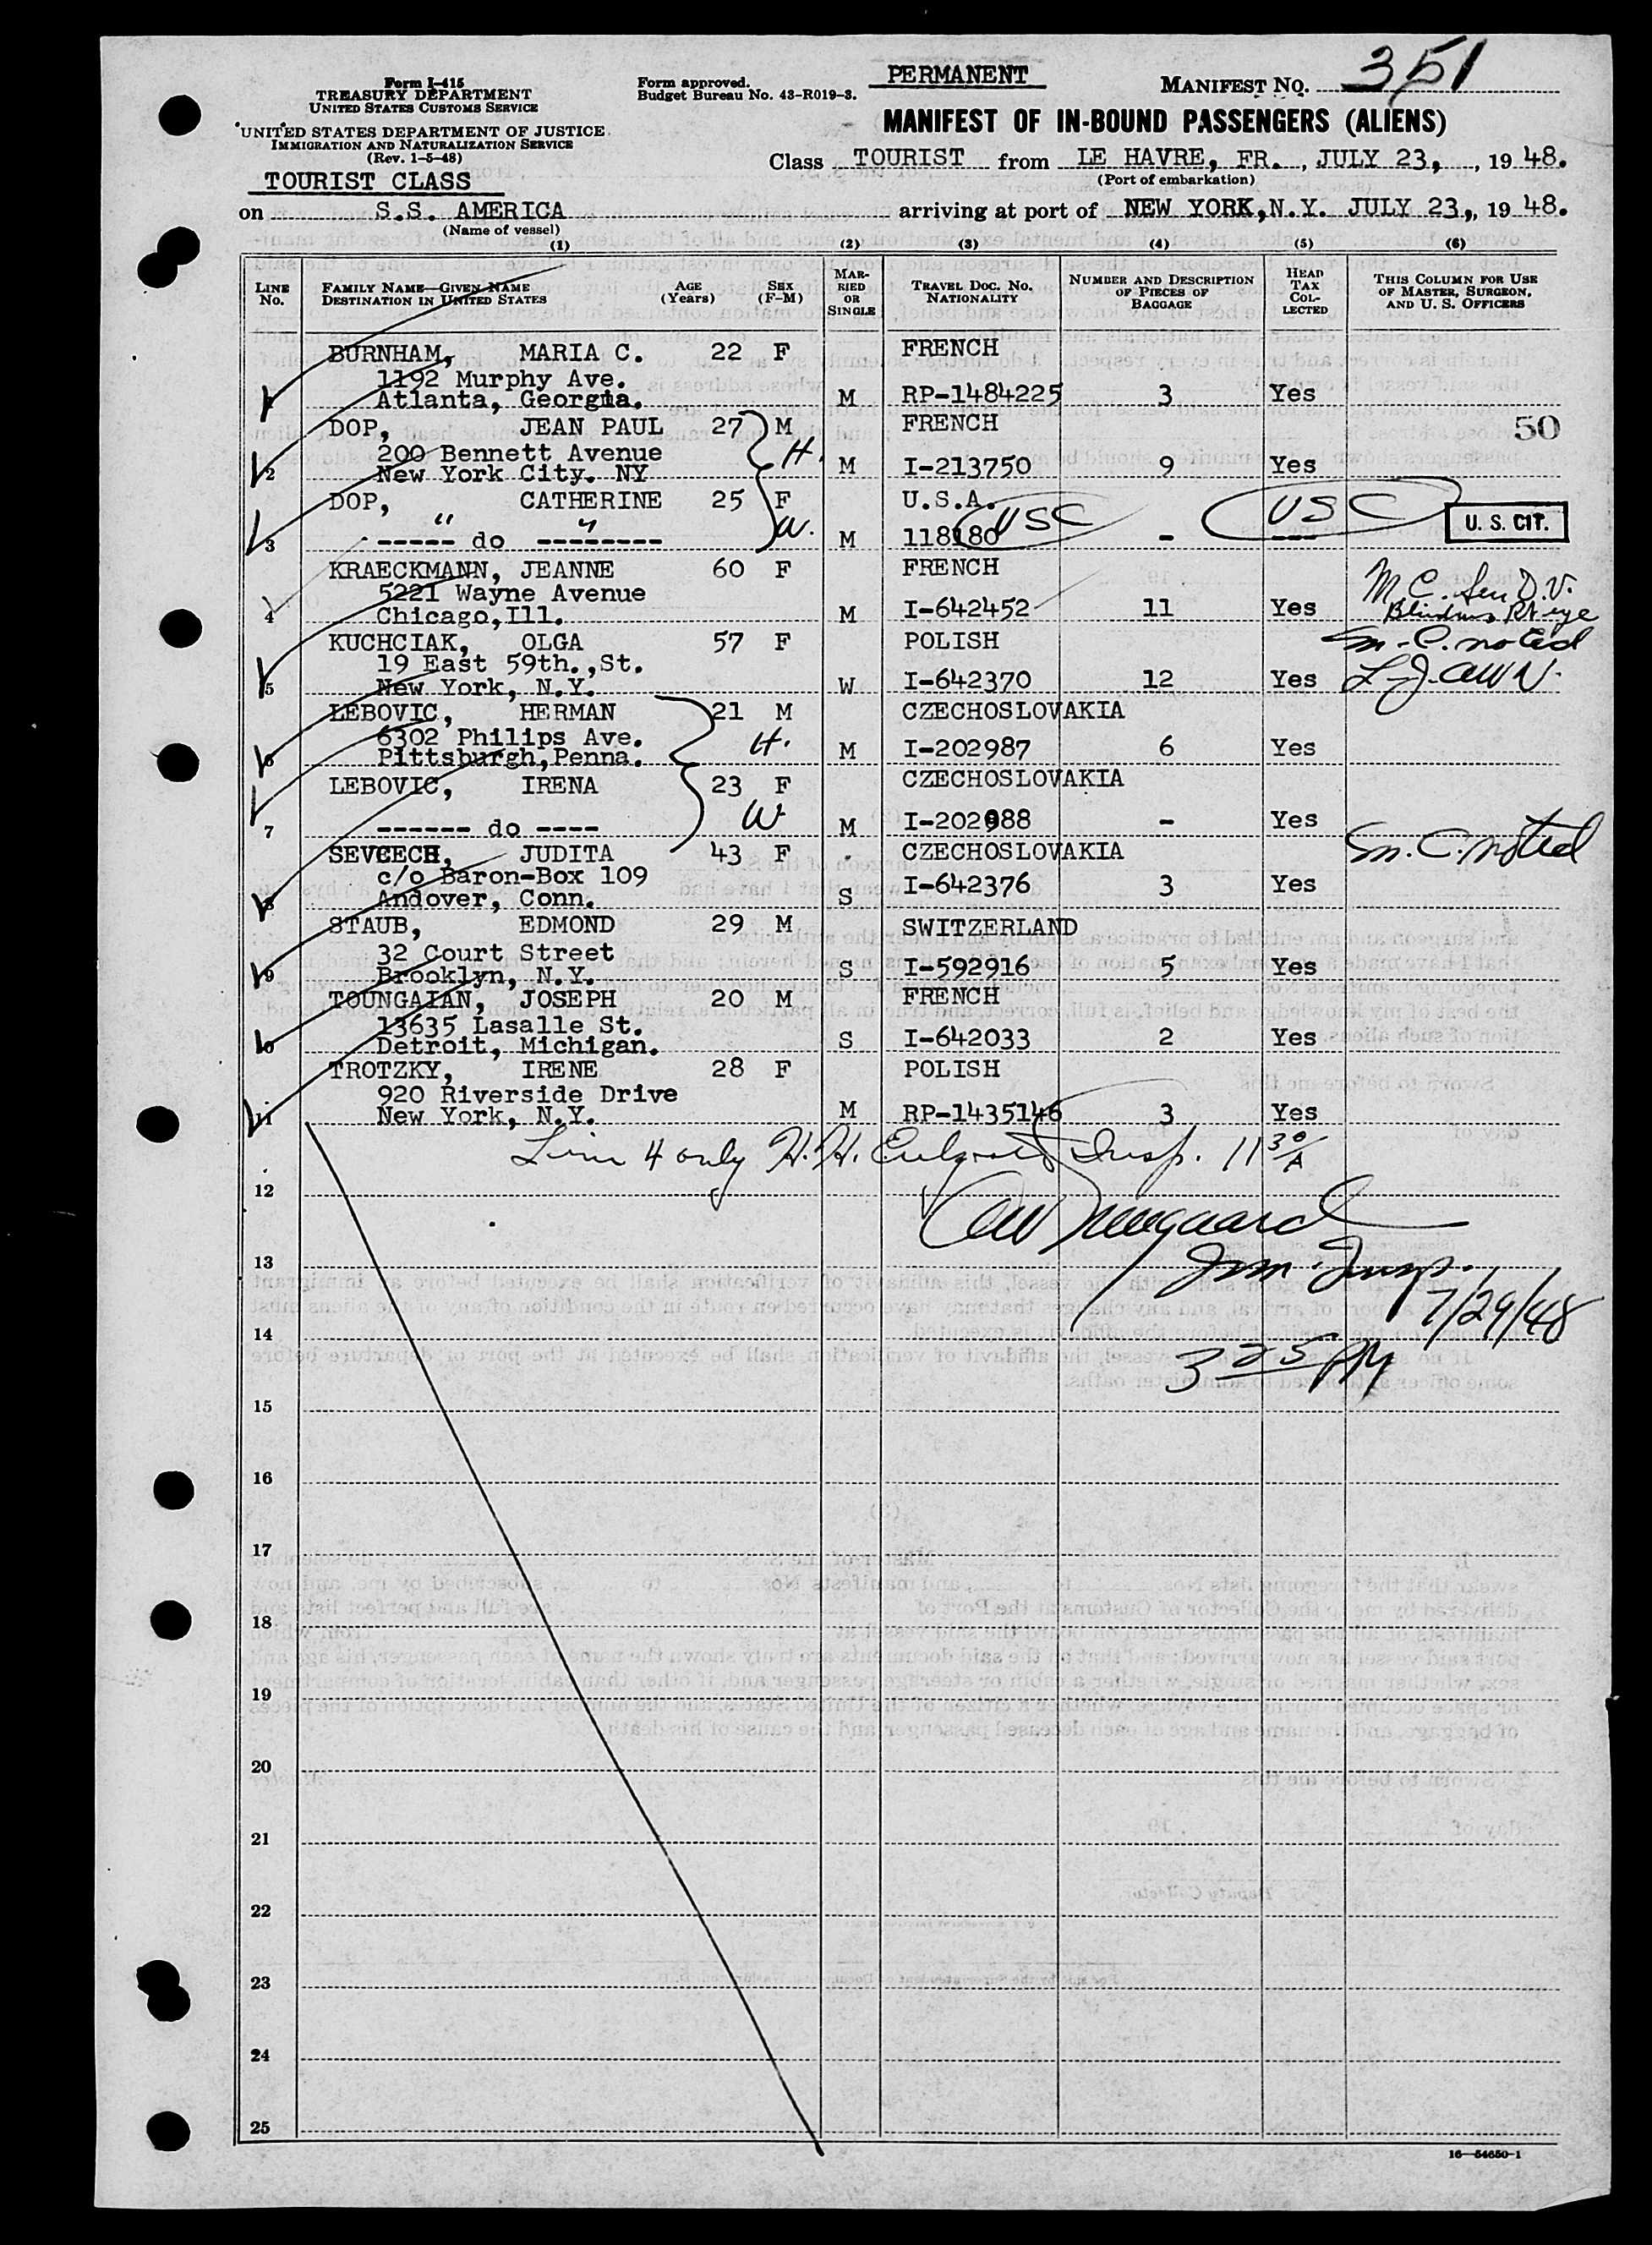 Form I-415
TREASURY DEPARTMENT
UNITED STATES CUSTOMS SERVICE
UNITED STATES DEPARTMENT OF JUSTICE
IMMIGRATION AND NATURALIZATION SERVICE
(Rev. 1-5-48)
TOURIST CLASS
Form approved.
Budget Bureau No. 43-R019-3.
PERMANENT
MANIFEST NO. 351
MANIFEST OF IN-BOUND PASSENGERS (ALIENS)
Class TOURIST from LE HAVRE, FR., JULY 23, 1948.
(Port of embarkation)
on S.S. AMERICA arriving at port of NEW YORK, N.Y. JULY 23, 1948.
(Name of vessel)
(1) (2) (3) (4) (5) (6)
LINE NO. FAMILY NAME—GIVEN NAME DESTINATION IN UNITED STATES AGE (Years) SEX (F-M) MARRIED OR SINGLE TRAVEL DOC. NO. NATIONALITY NUMBER AND DESCRIPTION OF PIECES OF BAGGAGE HEAD TAX COLLECTED THIS COLUMN FOR USE OF MASTER, SURGEON, AND U. S. OFFICERS
BURNHAM, MARIA C. 22 F FRENCH
1192 Murphy Ave.
Atlanta, Georgia. M RP-1484225 3 Yes
DOP, JEAN PAUL 27 M FRENCH 50
200 Bennett Avenue H.
2 New York City. NY M I-213750 9 Yes
DOP, CATHERINE 25 F U.S.A. USC USC U. S. CIT.
" " W.
3 ----- do -------- M 118180 - ---
KRAECKMANN, JEANNE 60 F FRENCH
5221 Wayne Avenue M.C. Sen D.V.
4 Chicago, Ill. M I-642452 11 Yes Blindness Rt eye
KUCHCIAK, OLGA 57 F POLISH M.C. noted
19 East 59th., St.
5 New York, N.Y. W I-642370 12 Yes
LEBOVIC, HERMAN 21 M CZECHOSLOVAKIA
6302 Philips Ave. H.
6 Pittsburgh, Penna. M I-202987 6 Yes
LEBOVIC, IRENA 23 F CZECHOSLOVAKIA
W
7 ------ do ---- M I-202988 - Yes
SEVCECH, JUDITA 43 F CZECHOSLOVAKIA M.C. noted
c/o Baron-Box 109
8 Andover, Conn. S I-642376 3 Yes
STAUB, EDMOND 29 M SWITZERLAND
32 Court Street
9 Brooklyn, N.Y. S I-592916 5 Yes
TOUNGAIAN, JOSEPH 20 M FRENCH
13635 Lasalle St.
10 Detroit, Michigan. S I-642033 2 Yes
TROTZKY, IRENE 28 F POLISH
920 Riverside Drive
11 New York, N.Y. M RP-1435146 3 Yes
Line 4 only H.H. Insp. 11 30/A
12
13
Imm. Insp.
7/29/48
14
3 25 PM
15
16
17
18
19
20
21
22
23
24
25
16—54650-1